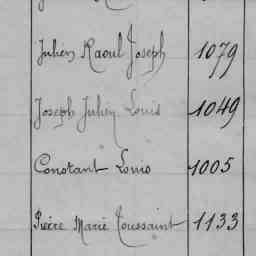 Julien Raoul Joseph 1079
Joseph Julien Louis 1049
Constant Louis 1005
Pierre Marie Toussaint 1133